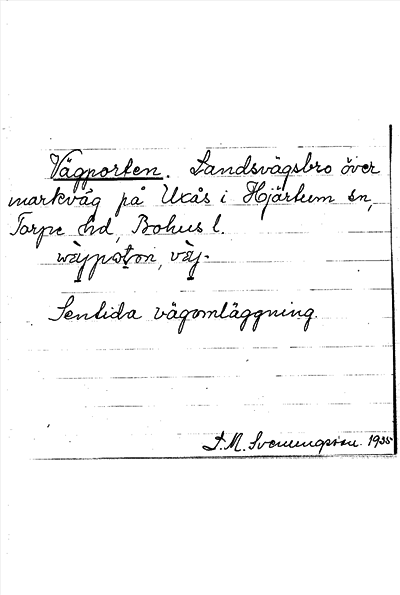 Vägporten. Landsvägsbro över
markväg på Uxås i Hjärtum sn,
Torpe hd, Bohus l.
väy-
Sentida vägomläggning.
S.M. Svenungsson 1935